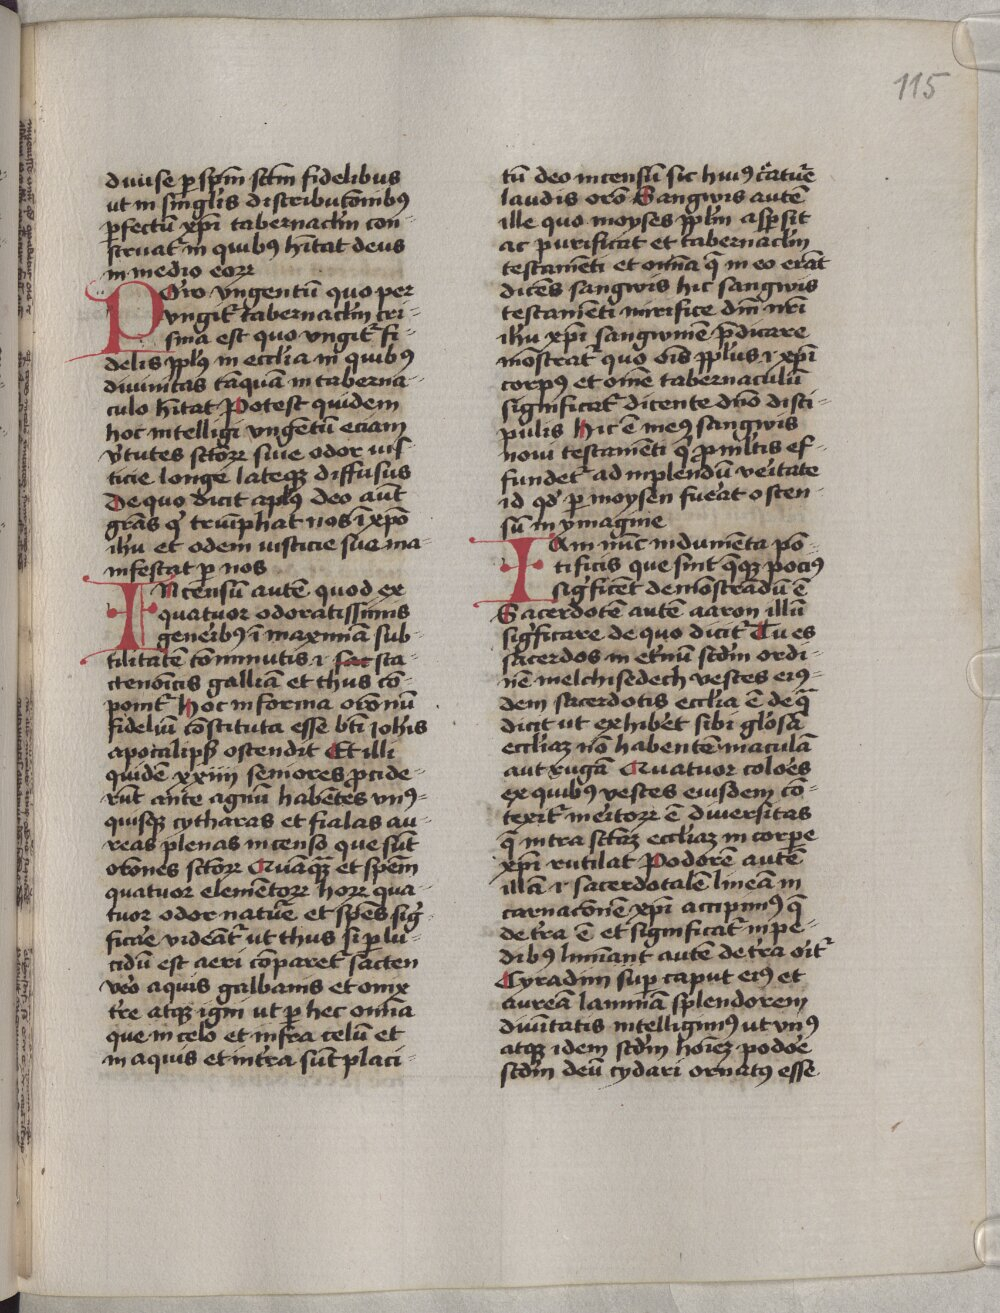 115
diuise p spm̄ sctm̄ fidelibus
ut in singl̄is distributōnibꝰ
ꝑfectū xp̄i tabernacl̄m con⸗
struat᷑ in quibꝰ hītat deus
in medio eoꝝ
POrro vngentū quo per
vngit᷑ tabernacl̄m cri⸗
sma est quo vngit᷑ fi⸗
delis pp̄lꝰ in eccl̄ia in quibꝰ
diuinitas tāquā in taberna⸗
culo hītat Potest quidem
hoc intelligi vngentū eciam
v̓tutes sctōꝝ siue odor iuſ⸗
ticie longe lateqꝫ diffusus
De quo dicit apl̄ꝰ deo aūt
grās qͥ triūphat nos ī xp̄o
ih̄u et odem iusticie sue ma⸗
nifestat p nos
INcensū autē quod ex
quatuor odoratissimis
generibꝰ ī maximā sub⸗
tilitatē cōminutis ⁊ sta⸗
ctenōicis galliā et thus cō⸗
ponit᷑ Hoc in forma or̄onū
fideliū cōstituta esse bt̄i ioh̄is
apocalipß ostendit Et illi
quidē xxiiii seniores ꝓcide⸗
rūt ante agnū habētes vnꝰ⸗
quisqꝫ cytharas et fialas au⸗
reas plenas incenso que sūt
or̄ones sctōꝝ Quāqꝫ et spēm
quatuor elemētoꝝ hoꝝ qua⸗
tuor odor nature et spēs sig⸗
ficare videāt᷑ ut thus si plu⸗
cidū est aeri cōparet᷑ sacten
vero aquis galbanis et onix
tre atqꝫ igni ut p hec omīa
que in celo et infra celū et
in aquis et intra sūt placi⸗
tū deo incensū sic huiꝰ creature
laudis or̄o Sangwis autē
ille quo moyses pp̄lm̄ asꝑsit
ac purificat et tabernacl̄m
testamēti et omīa q̄ in eo erāt
dicēs sangwis hic sangwis
testamēti mirifice dm̄ nr̄i
ih̄u xp̄i sangwinē p̄dicare
mōstrat᷑ quo oīs pp̄lus ⁊ xp̄i
corpꝰ et omē tabernaculū
significat᷑ dicente dn̄o disci⸗
pulis Hic ē meꝰ sangwis
noui testamēti qͥ ꝓ mltis ef⸗
fundet᷑ ad inplendū veritate
id qd̓ p moysen fuerat osten⸗
sū in ymagine
IAm nūc indumēta pō⸗
tificis que sint qͣqꝫ pociꝰ
sigficēt demōstradū ē
Sacerdotē autē aaron illū
sigficare de quo dicit᷑ Tu es
sacerdos in et̓nū scdm̄ ordi⸗
nē melchisedech vestes eiꝰ⸗
dem sacerdotis eccl̄ia ē de qͣ
dicit ut exhibēt sibi glōsā
eccl̄iaꝫ nō habentē maculā
aut rugā Quatuor colores
ex quibꝰ vestes eiusdem cō⸗
texit᷑ meritoꝝ ē diuersitas
q̄ intra sctāꝫ eccl̄iaꝫ in corpe
xp̄i rutilat Podorē autē
illā ⁊ sacerdotalē lineā in
carnacōnē xp̄i accipimꝰ q̄
de tr̄a ē et significat᷑ in pe⸗
dibꝰ lin̄iant autē de tr̄a oit᷑
Cyradim suꝑ caput eiꝰ et
aureā laminā splendorem
diuītatis intelligimꝰ ut vnꝰ
atqꝫ idem scdm̄ hōieꝫ podore
scdm̄ deū cydari ornatꝰ esse